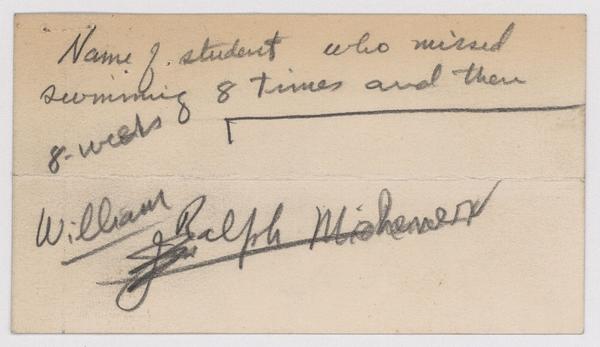 Name of student who missed
swimming 8 times and then
8-weeks
William
Ralph Michener